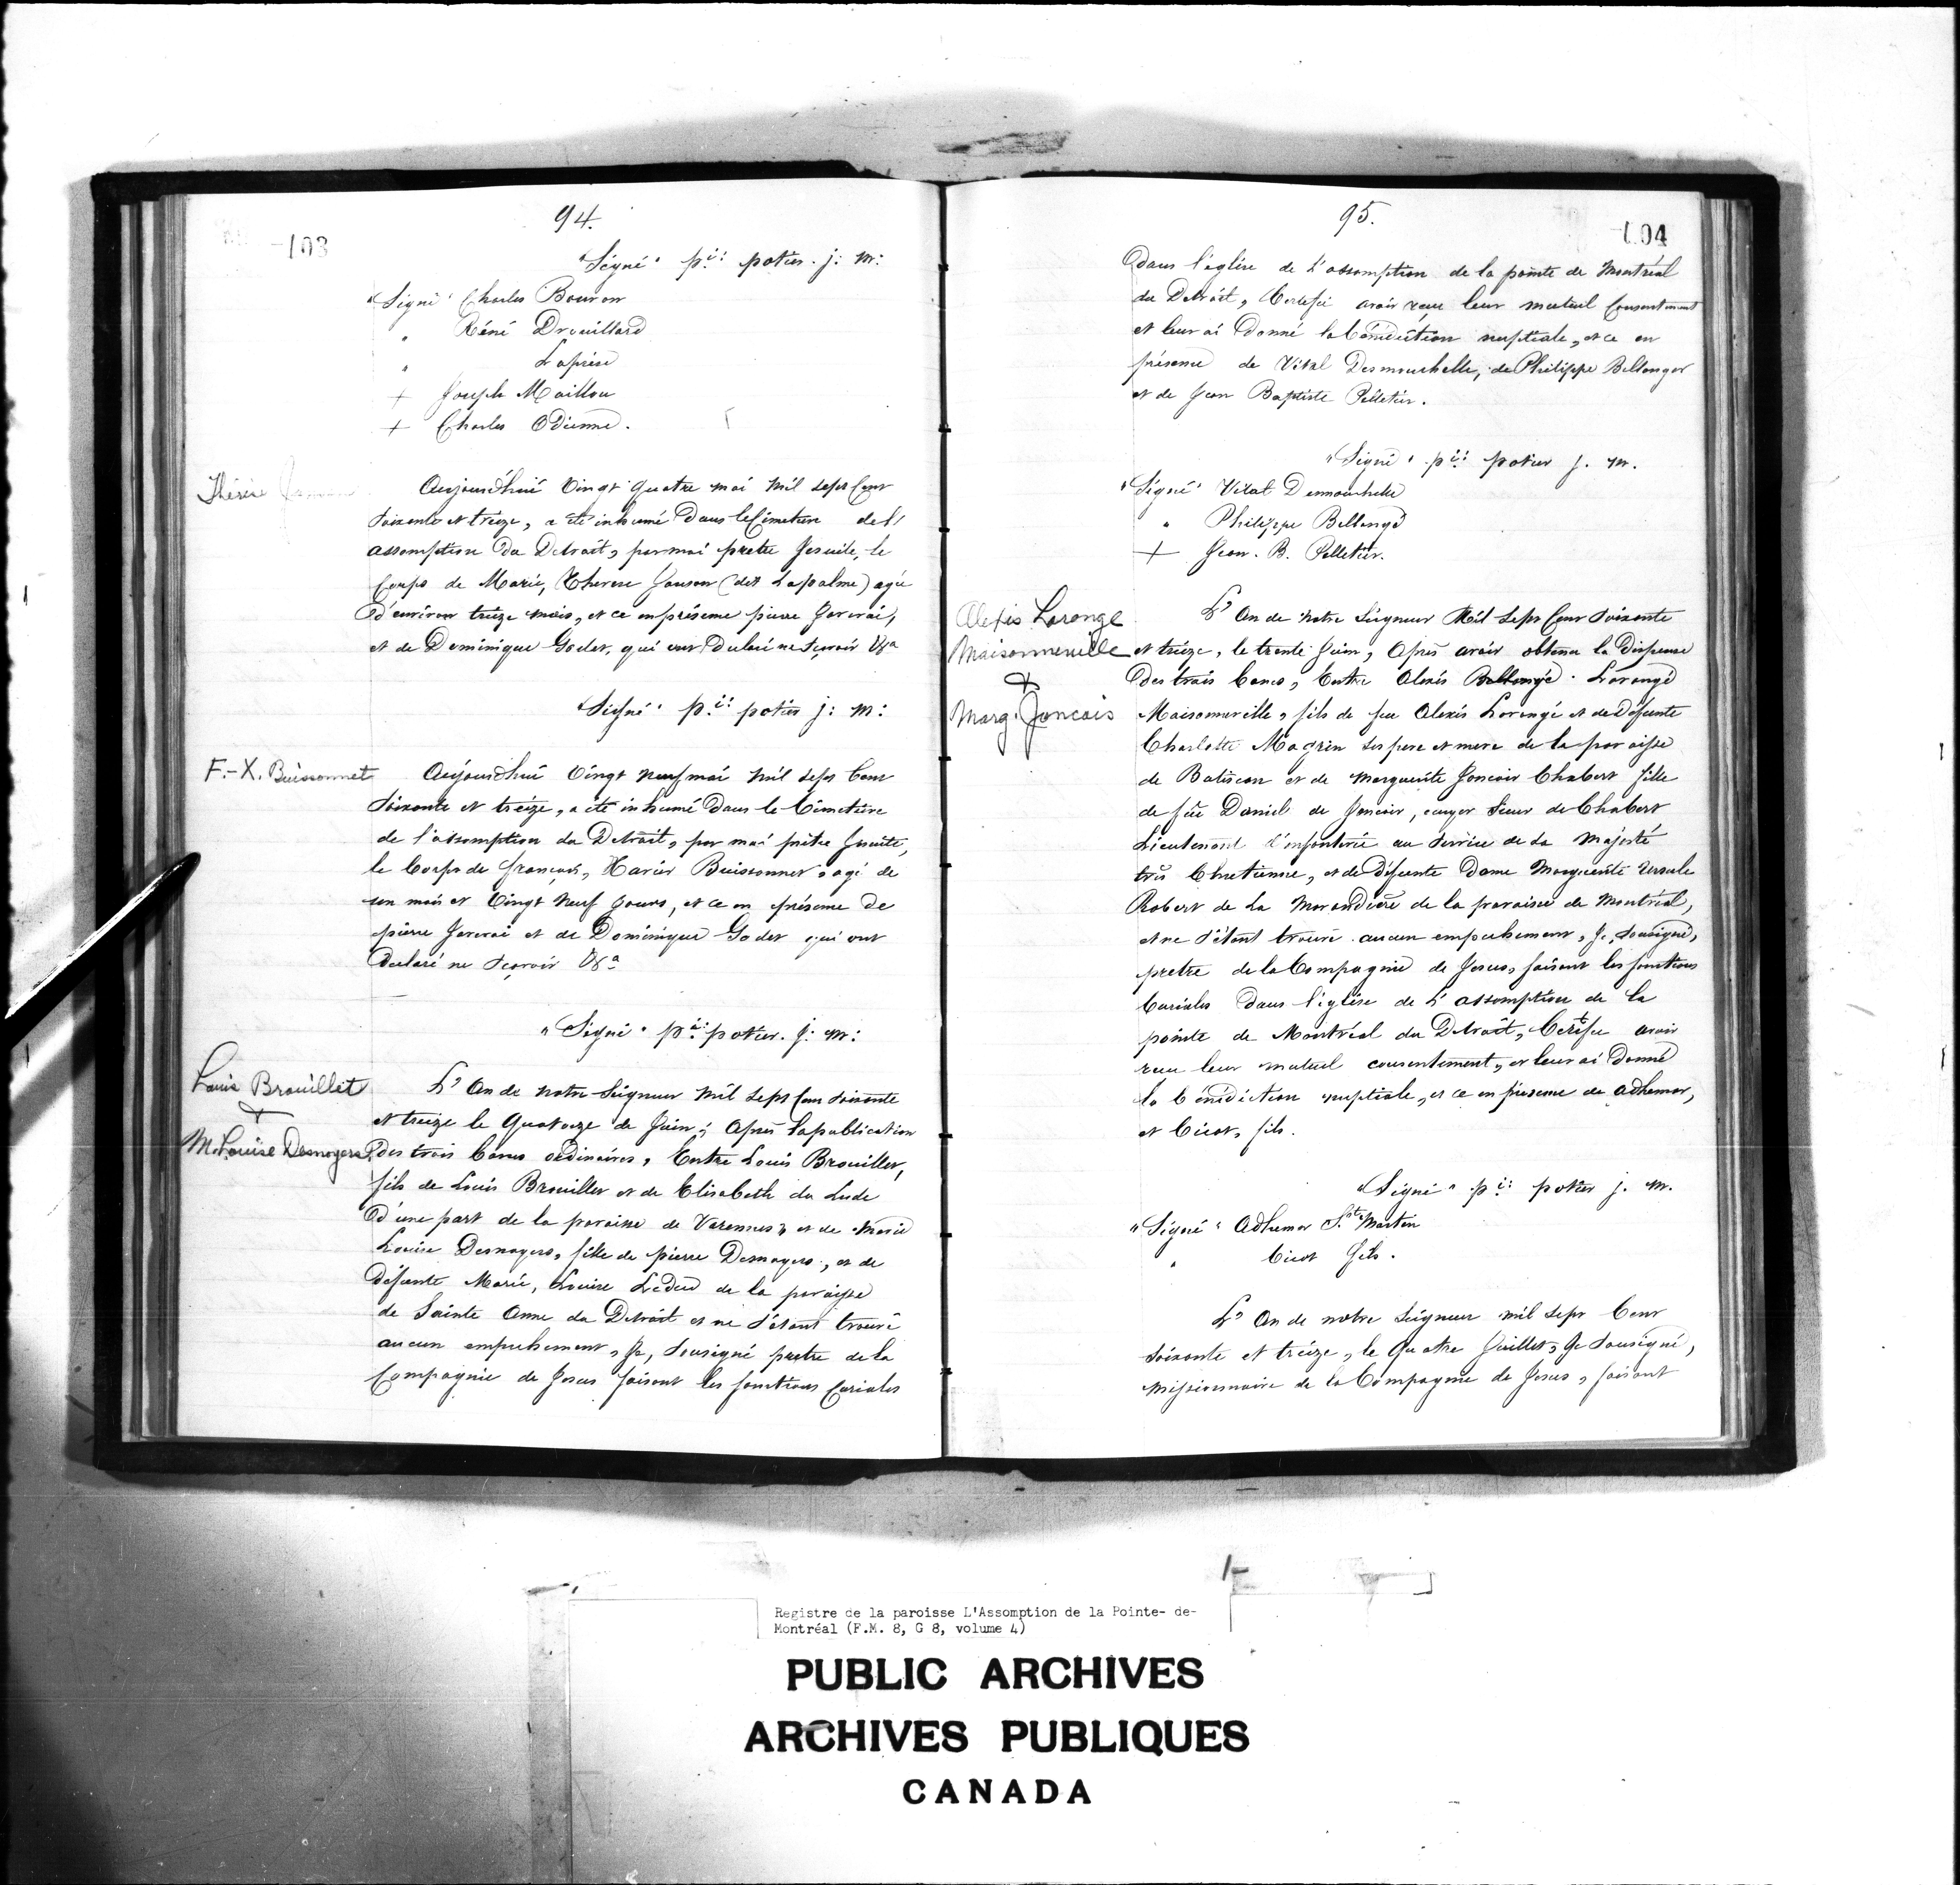 94.
103
"Signé" p.re potier. j: m:
"Signé" Charles Bouron
" Réné Drouillard
" Laprise
+ Joseph Maillou
+ Charles Odienne.
Thérèse
Aujourdhui Vingt quatre mai mil sept Cent
Soixante et treize, a été inhumé Dans le Cimetiere de l'
assomption du Detroit, par moi pretre Jesuite, le
Corps de Marie, Therese Janson (dit Lapalme) agée
D'environ treize mois, et ce en présence pierre Jerverai,
et de Dominique Godet, qui ont Declaré ne sçavoir
"Signé" p.re potier j: m:
F.-X. Buissonnet
Aujourdhui Vingt neuf mai mil sept Cent
Soixante et treize, a été inhumé Dans le Cimetiere
de l'assomption du Detroit, par moi prêtre Jesuite,
le Corps de françois, Xavier Buissonnet agé de
un mois et Vingt neuf jours, et ce en présence De
pierre Jerverai et de Dominique Godet qui ont
Declaré ne sçavoir
"Signé" p.re potier. j: m:
Louis Brouillet
+
M. Louise Desnoyers
L'An de notre Seigneur mil sept Cent Soixante
et treize le Quatorze de Juin; Après la publication
Des trois bancs ordinaires, Entre Louis Brouillet,
fils de Louis Brouillet et de Elisabeth du Lude
D'une part de la paroisse de Varennes, et de Marie
Louise Desnoyers, fille de pierre Desnoyers, et de
Défunte Marie, Louise Leduc de la paroisse
de Sainte Anne du Detroit et ne s'étant trouvé
aucun empechement, Je, Sousigné pretre de la
Compagnie de Jesus faisant les fonctions Curiales
95.
104
Dans l'eglise de L'assomption de la pointe de Montréal
du Detroit, Certifié avoir reçu leur mutuel Consentement
et leur ai Donné la bénédiction nuptiale, et ce en
présence de Vital Desmouchelle, de Philippe Bellanger
et de Jean Baptiste Pelletier.
"Signé" p.re potier j. m.
"Signé" Vital Demouchelle
" Philippe Bellangé
+ Jean. B. Pelletier.
Alexis Lorange
Maisonneuville
+
Marg. Joncais
L'An de notre Seigneur Mil Sept Cent Soixante
et treize, le trente Juin, Après avoir obtenu la Dispense
Des trois bancs, Entre Alexis Bellangé. Lorangé
Maisonneville, fils de feu Alexis Lorengé et de Défunte
Charlotte Magrin ses pere et mere de la paroisse
de Batiscan et de Marguerite Joncair Chabert fille
de feu Daniel de Joncair, ecuyer Sieur de Chabert
Lieutenant d'infanterie au service de Sa Majesté
très Chretienne, et de Défunte Dame Marguerite Ursule
Robert de La Morandière de la paroisse de Montréal,
et ne s'étant trouvé aucun empechement, Je, sousigné,
pretre de la Compagnie de Jesus, faisant les fonctions
Curiales Dans l'église de L'assomption de la
pointe de Montréal du Detroit, Certifie avoir
recu leur mutuel consentement, et leur ai Donné
la bénédiction nuptiale, et ce en présence de adhemar,
et Cicot, fils.
"Signé" p.re potier j. m.
"Signé" Adhemar St. Martin
" Cicot fils.
L'An de notre Seigneur mil sept Cent
Soixante et treize, le Quatre Juillet, Je Sousigné,
Missionnaire de la Compagnie de Jesus, faisant
Registre de la paroisse L'Assomption de la Pointe- de-
Montréal (F.M. 8, G 8, volume 4)
PUBLIC ARCHIVES
ARCHIVES PUBLIQUES
CANADA